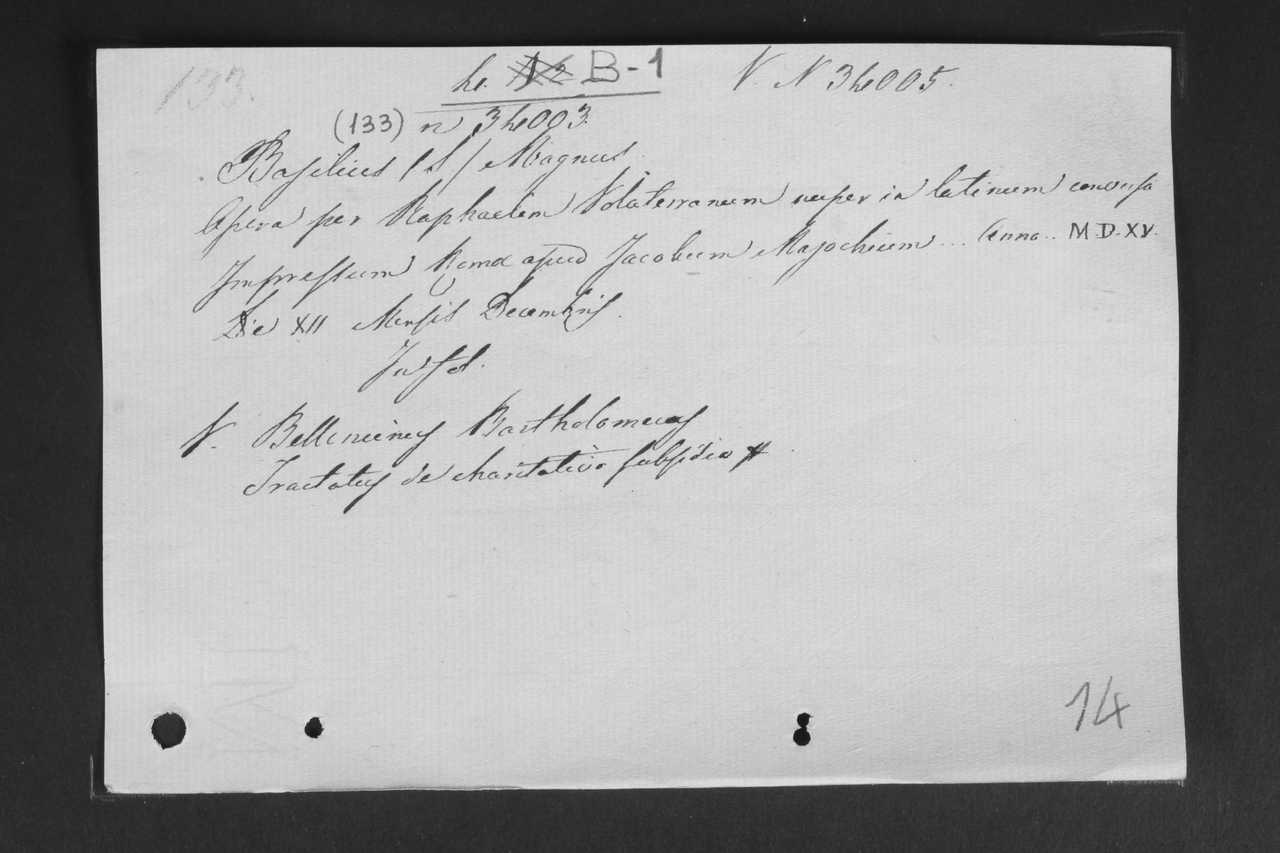 133.
h. 12 B-1
V. N 34005.
(133) n 34003.
Basilius (S) Magnus
Opera per Raphaelem Volaterranum nuper in latinum conversa
Impressum Romæ apud Jacobum Mazochium... Anno.. M.D.XV.
Die XII Mensis Decembris.
In fol.
V. Bellencinus Bartholomeus
Tractatus de charitativo subsidio
14